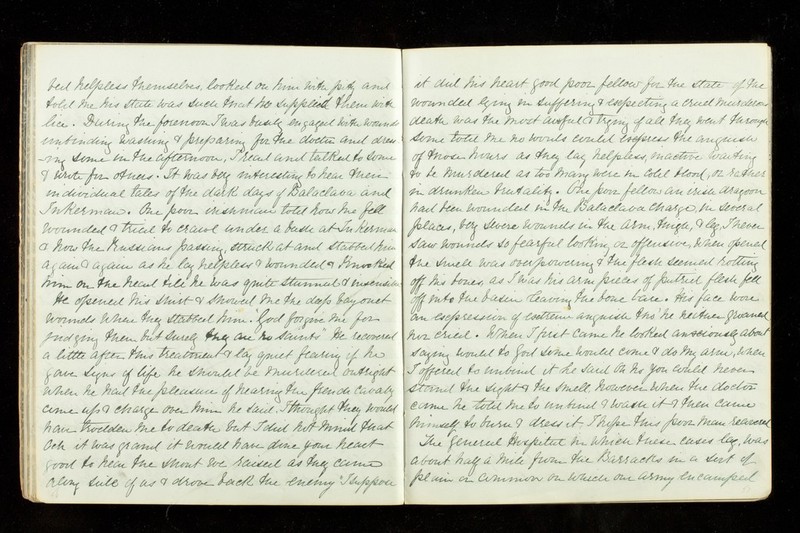 bed helpless themselves, looked on him with pity and
told me his state was such that he supplied them with
lice. During the forenoon I was busily engaged with wounds
unbinding washing & preparing for the doctor and dres
-ing some in the afternoon, I read and talked to some
& wrote for others. It was very interesting to hear their
individual tales of the dark days of Balaclava and
Inkerman. One poor irishman told how he fell
wounded & tried to crawl under a bush at Inkerman
& how the Russians passing, struck at and stabbed him
again & again as he lay helpless & wounded & knocked
him on the head till he was quite stunned & insensible
He opened his shirt & showed me the deep bayonet
wounds where they stabbed him. God forgive me for
judging them but surely they are no saints" He recovered
a little after this treatment & lay quiet fearing if he
gave signs of life he should be murdered outright
when he had the pleasure of hearing our friends Cavalry
come up & charge over him he said. I thought they would
have trodden me to death but I did not mind that
Och it was grand it would have done your heart
good to hear the shout we raised as they came
along side of us & drove back the enemy" I suppose
it did his heart good poor fellow for the state of the
wounded lying in suffering & expecting a cruel murderous
death was the most awful & trying of all they went through
some told me no words could express the anguish
of those hours as they lay helpless, inactive waiting
to be murdered as too many were in cold blood, or rather
in drunken brutality. One poor fellow an irish dragoon
had been wounded in the Balaclava Charge, in several
places, very severe wounds in the arm, thigh, & leg, I never
saw wounds so fearful looking, or offensive, when opened
the smell was overpowering & the flesh seemed rotting
off his bones, as I was his arm pieces of putrid flesh fell
off into the basin leaving the bone bare. His face wore
an expression of extreme anguish tho' he neither groaned
nor cried. When I first came he looked anxiously about
saying would to God some would come & do my arm, when
I offered to unbind it he said Oh No you could never
stand the sight & the smell however when the doctor
came he told me to unbind & wash it & then came
himself to burn & dress it I hope this poor man recovered
The General Hospital in which these cases lay, was
about half a mile from the Barracks in a sort of
plain or common on which our army encamped